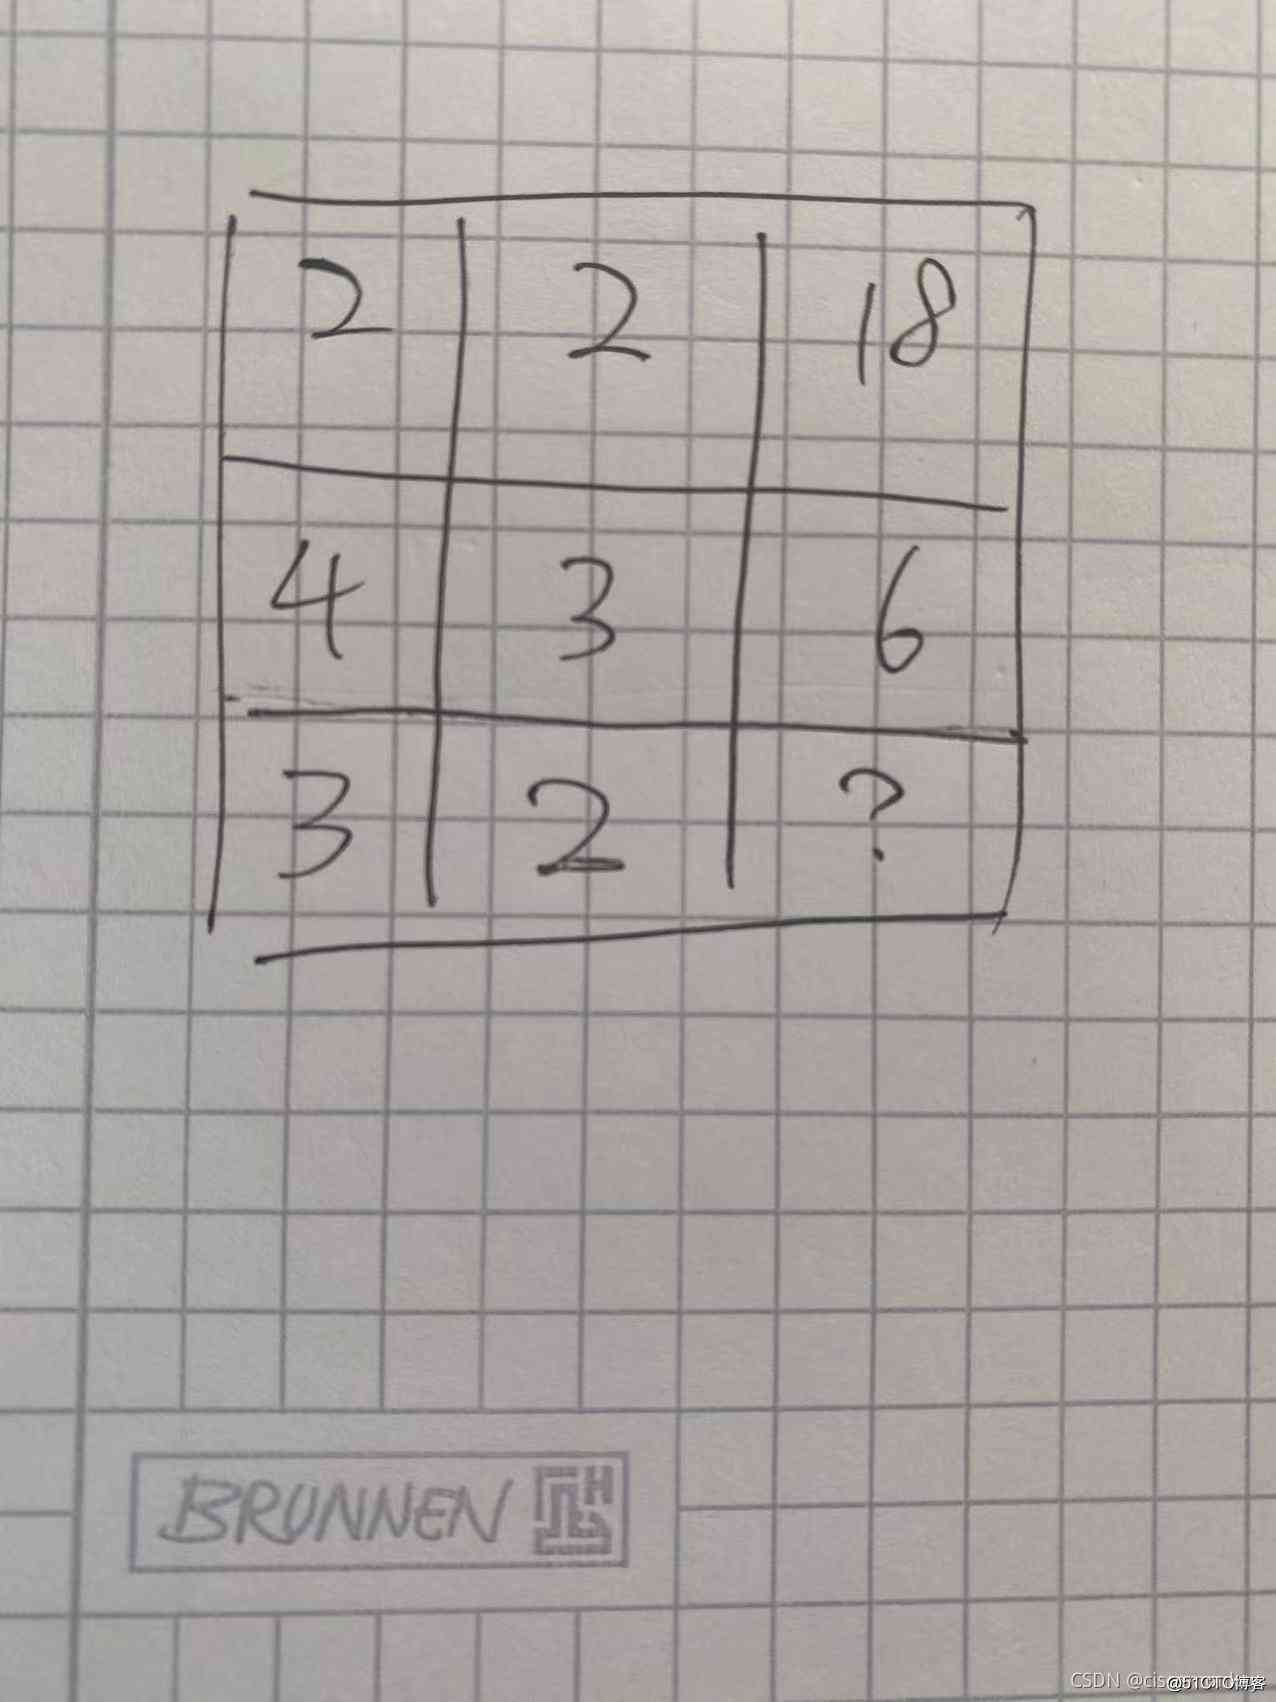 2 2 18
4 3 6
3 2 ?
BRUNNEN
CSDN
@51CTO博客